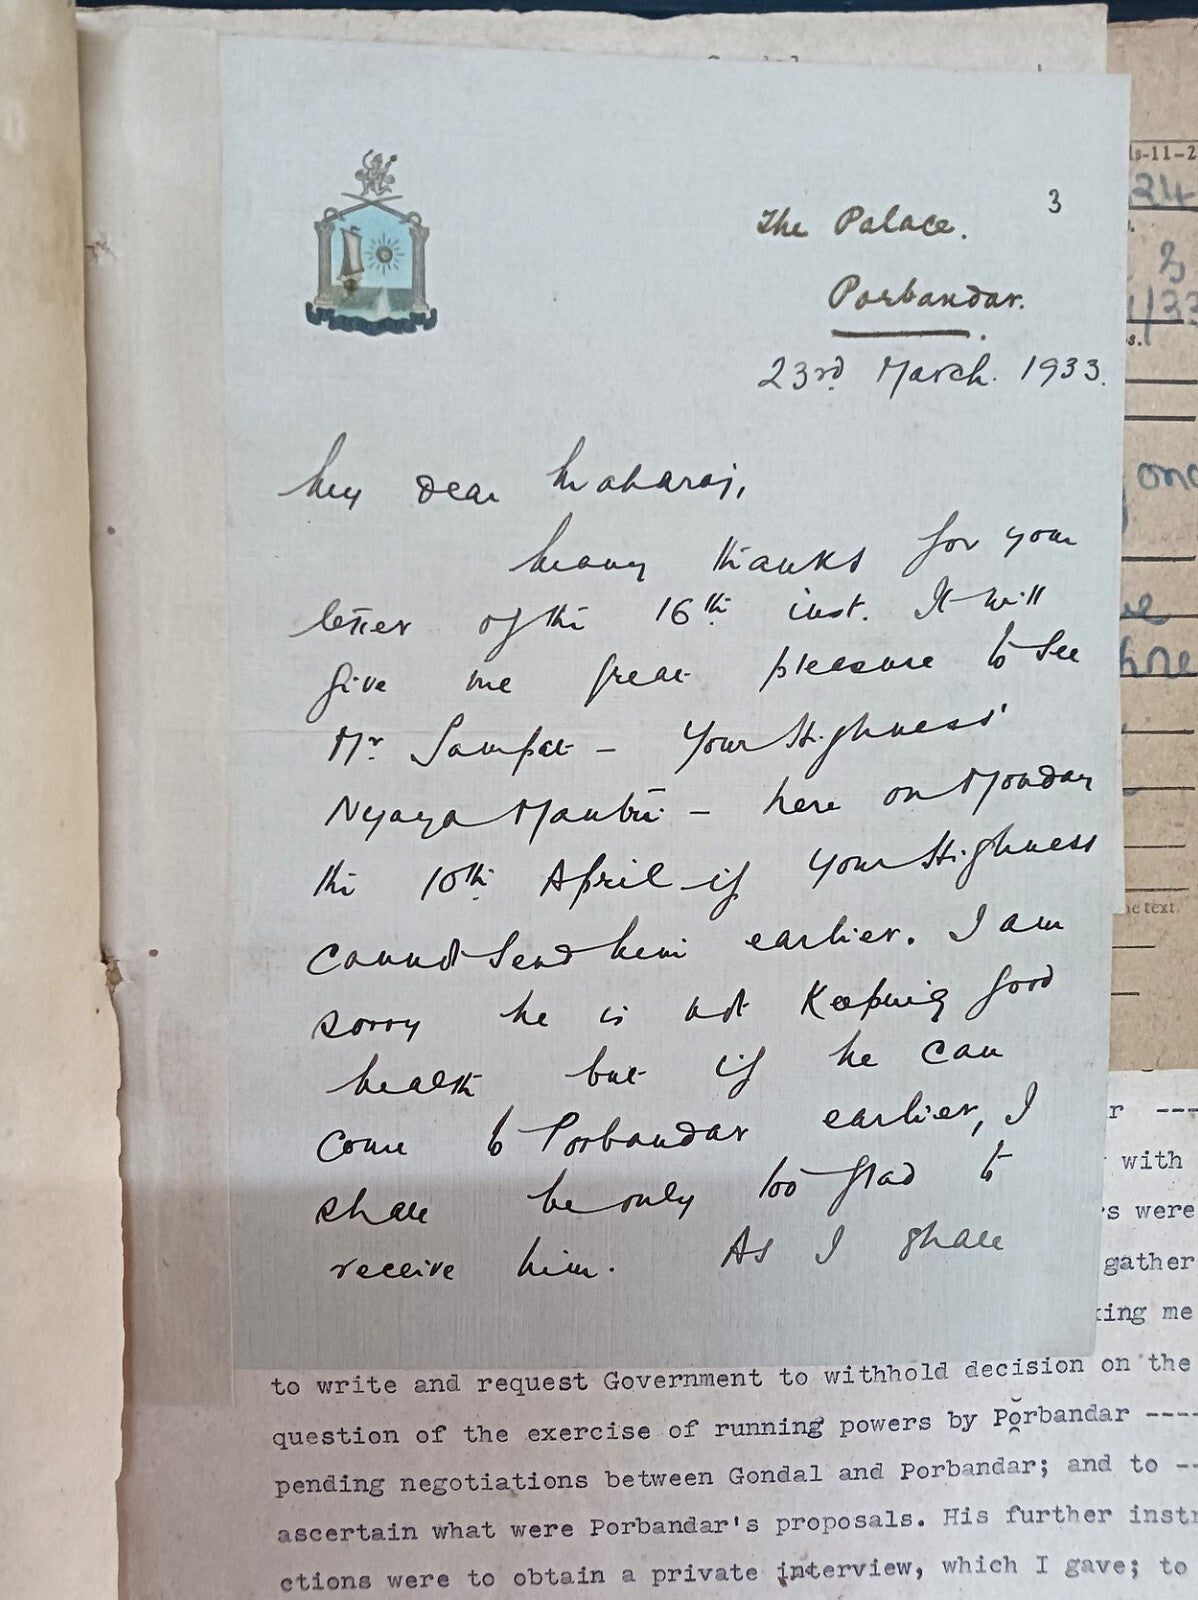 3
The Palace.
Porbandar.
23rd March. 1933.
My dear Maharaj,
Many thanks for your
letter of the 16th inst. It will
give me great pleasure to see
Mr Sampat - Your Highness'
Nyaya Mantri - here on Monday
the 10th April if Your Highness
cannot send him earlier. I am
sorry he is not keeping good
health but if he can
come to Porbandar earlier, I
shall be only too glad to
receive him. As I shall
s-11-2
24
/33
s.
one text.
r ---
with
s were
gather
king me
to write and request Government to withhold decision on the
question of the exercise of running powers by Porbandar ----
pending negotiations between Gondal and Porbandar; and to --
ascertain what were Porbandar's proposals. His further instr
ctions were to obtain a private interview, which I gave; to